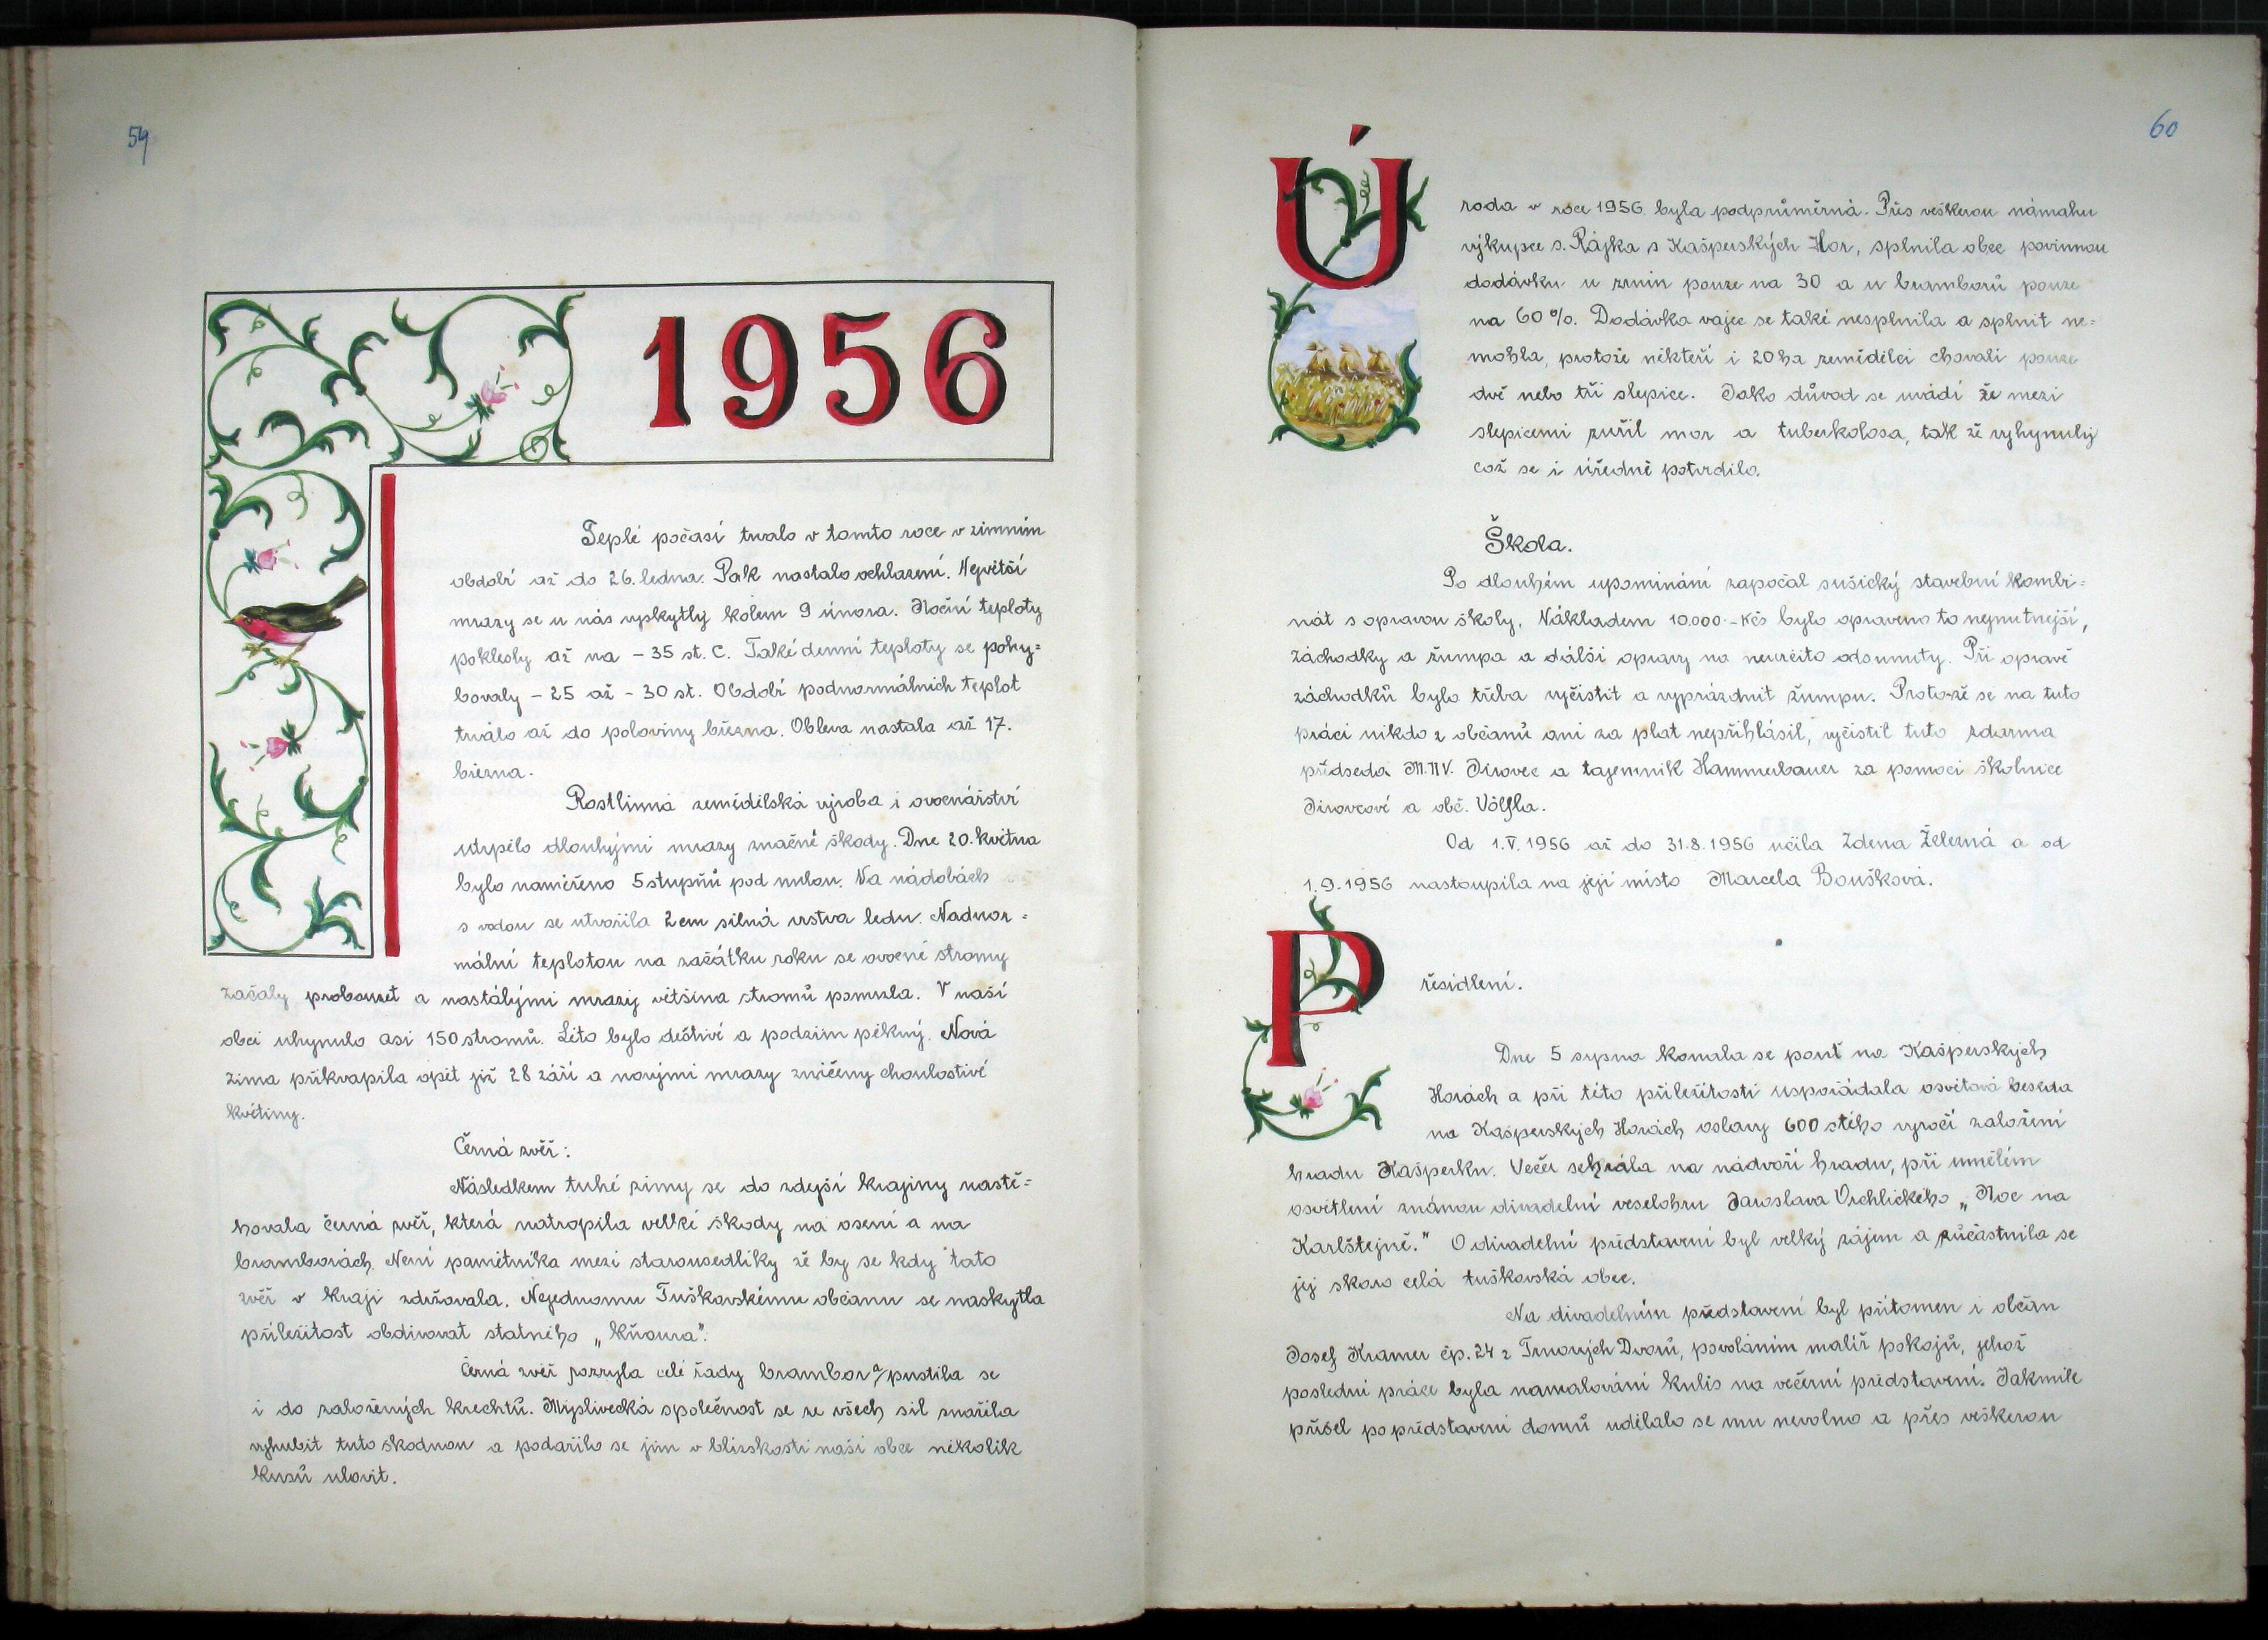 59
1956
Teplé počasí trvalo v tomto roce v zimním
období až do 26. ledna. Pak nastalo ochlazení. Největší
mrazy se u nás vyskytly kolem 9 února. Noční teploty
poklesly až na - 35 st. C. Také denní teploty se pohy=
bovaly - 25 až - 30 st. Období podnormálních teplot
trválo až do poloviny března. Obleva nastala až 17.
března.
Rostlinná zemědělská výroba i ovocnářství
utrpělo dlouhými mrazy značné škody. Dne 20. května
bylo naměřeno 5 stupňů pod nulou. Na nádobách
s vodou se utvořila 2cm silná vrstva ledu. Nadnor=
mální teplotou na začátku roku se ovocné stromy
začaly probouzet a nastálými mrazy většina stromů pomrzla. V naší
obci uhynulo asi 150 stromů. Léto bylo deštivé a podzim pěkný. Nová
zima přikvapila opět již 28 září a novými mrazy zničeny choulostivé
květiny.
Černá zvěř:
Následkem tuhé zimy se do zdejší krajiny nastě=
hovala černá zvěř, která natropila velké škody na osení a na
bramborách. Není pamětníka mezi starousedlíky že by se kdy tato
zvěř v kraji zdržovala. Nejednomu Tuškovskému občanu se naskytla
příležitost obdivovat statného „kňoura".
Černá zvěř rozryla celé řady brambor a pustila se
i do založených krechtů. Myslivecká společnost se ze všech sil snažila
vyhubit tuto škodnou a podařilo se jim v blízskosti naší obce několik
kusů ulovit.
60
Úroda v roce 1956 byla podprůměrná. Přes veškerou námahu
výkupce s. Rájka s Kašperských Hor, splnila obec povinnou
dodávku u zrnin pouze na 30 a u bramborů pouze
na 60%. Dodávka vajec se také nesplnila a splnit ne=
mohla, protože někteří i 20 ha zemědělci chovali pouze
dvě nebo tři slepice. Jako důvod se uvádí že mezi
slepicemi zuřil mor a tuberkolosa, tak že vyhynuly
což se i úředně potvrdilo.
Škola.
Po dlouhém upomínání započal sušický stavební kombi=
nát s opravou školy. Nákladem 10.000.- Kčs bylo opraveno to nejnutnejší,
záchodky a žumpa a dálší opravy na neurčito odsunuty. Při opravě
záchodků bylo třeba vyčistit a vyprázdnit žumpu. Proto-že se na tuto
práci nikdo z občanů ani za plat nepřihlásil, vyčistil tuto zdarma
předseda M.NV. Jirovec a tajemník Hammerbauer za pomoci školnice
Jirovcové a obč. Völfla.
Od 1.V.1956 až do 31.8.1956 učila Zdena Železná a od
1.9.1956 nastoupila na její místo Marcela Boušková.
Přesídlení.
Dne 5 srpna konala se pouť na Kašperských
Horách a při této příležitosti uspořádala osvětová beseda
na Kašperských Horách oslavy 600 stého vyročí založení
hradu Kašperku. Večer sehrála na nádvoří hradu, při umělém
osvětlení známou divadelní veselohru Jaroslava Vrchlického „Noc na
Karlštejně." O divadelní představení byl velký zájem a zúčastnila se
jej skoro celá tuškovská obec.
Na divadelním představení byl přítomen i občan
Josef Kramer čp. 24 z Trnových Dvorů, povoláním malíř pokojů, jehož
poslední práce byla namalování kulis na večerní představení. Jakmile
přišel po představení domů udělalo se mu nevolno a přes veškerou